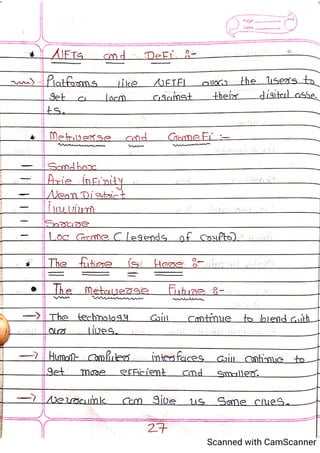 Page
Date
* NFTs and DeFi :-
Platforms like NFTFI allows the users to
get a loan against their digital asse-
ts.
* Metaverse and GameFi :-
— Sandbox
— Axie infinity
— Neon District
— illuvium
—
— LOC Game (legends of crypto).
* The future is Here :-
• The metaverse Future :-
→ The technology will continue to blend with
our lives.
→ Human-Computer interfaces will continue to
get more efficient and smaller.
→ Neuralink can give us some clues.
27
Scanned with CamScanner